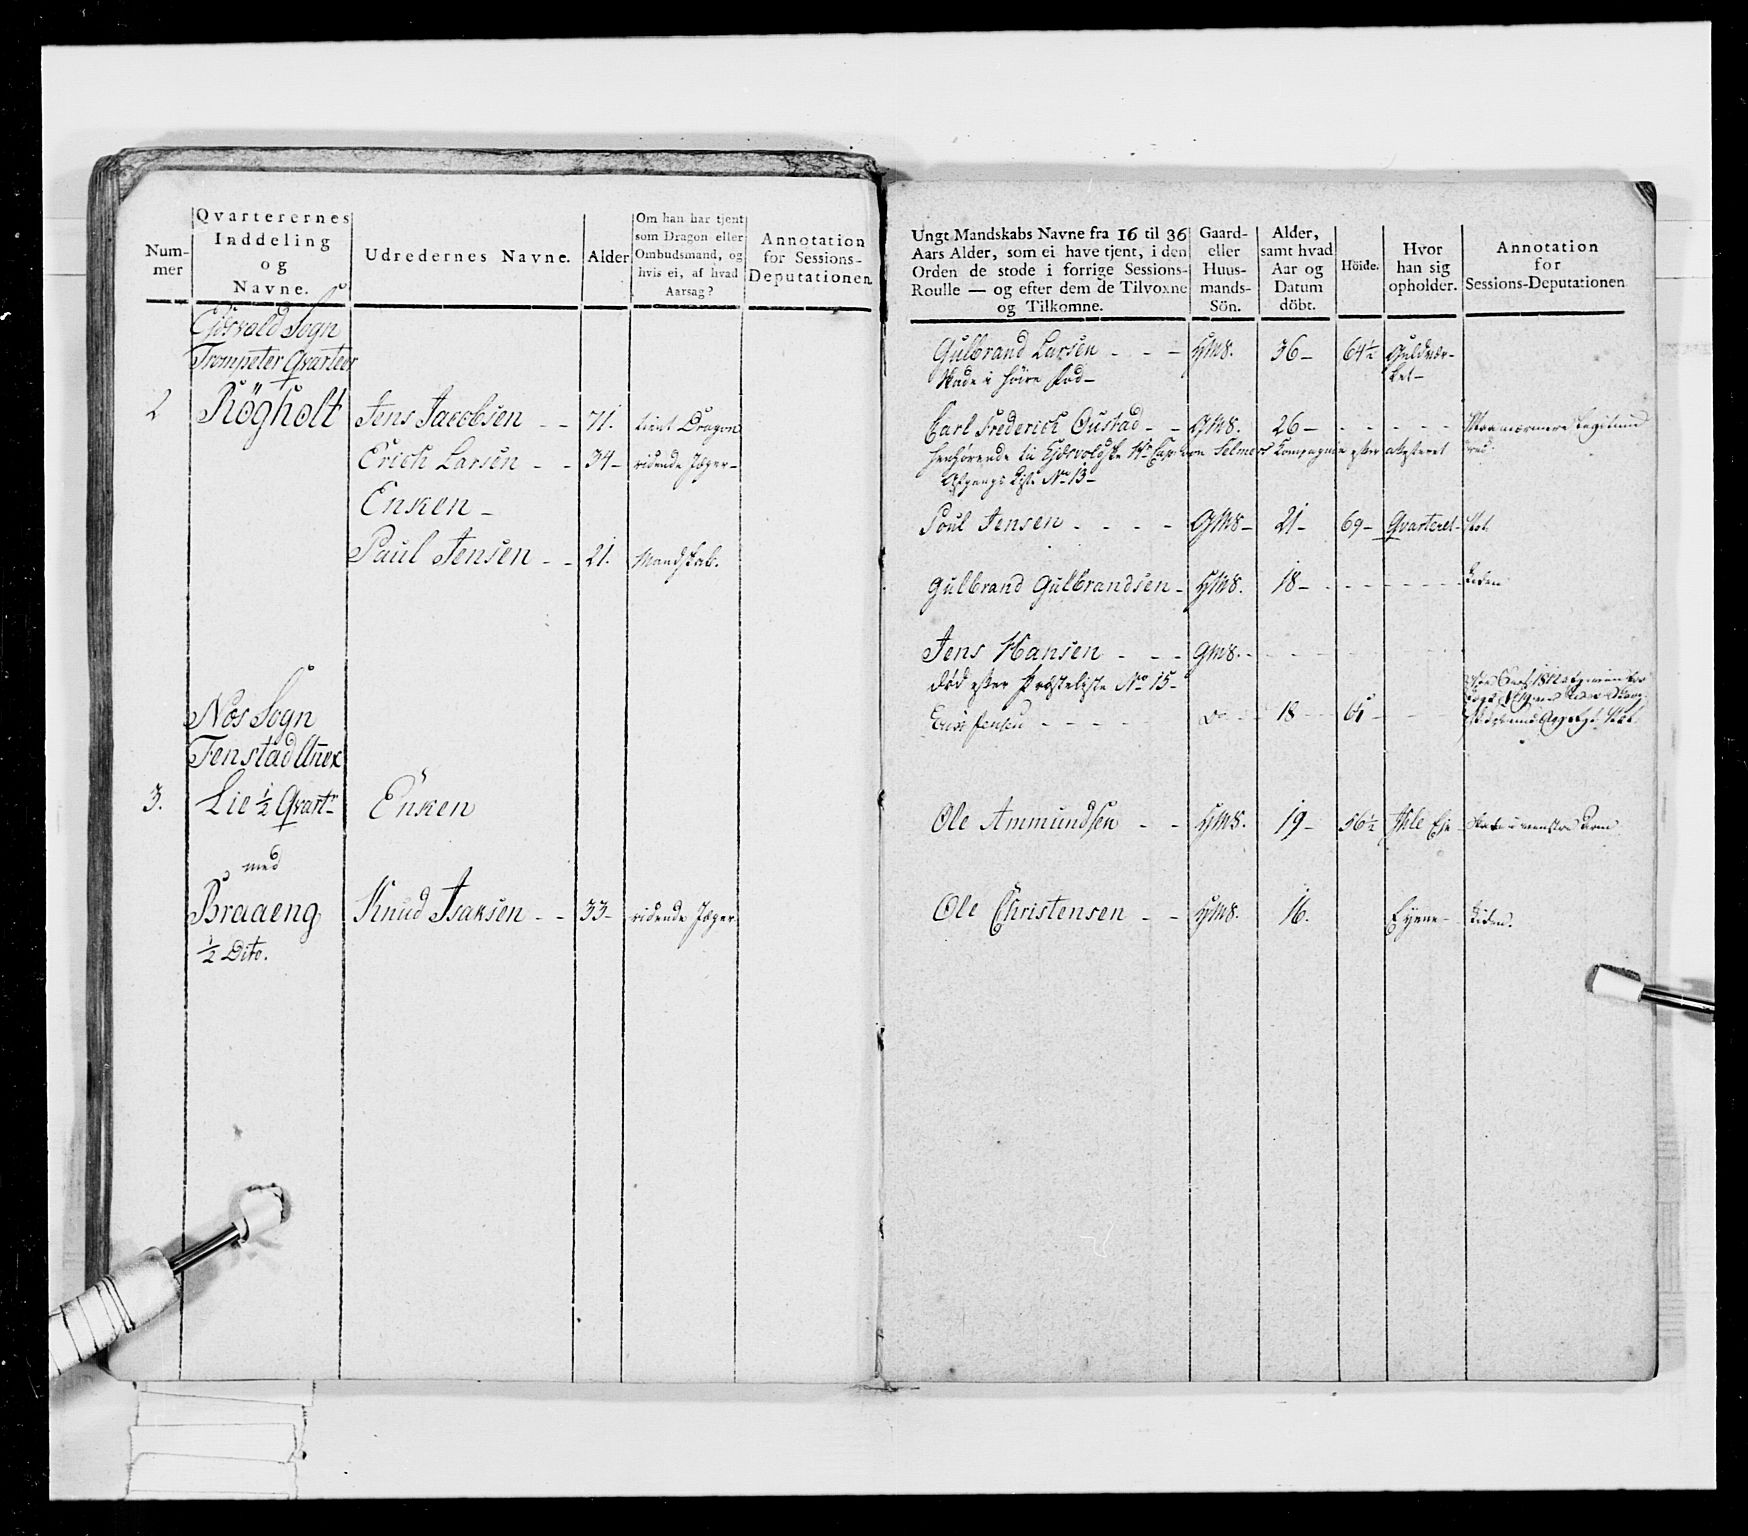 Num-
mer
Qvarterernes
Inddeling
og
Navne.
Udredernes Navne.
Alder
Om han har tjent
som Dragon eller
Ombudsmand, og
hvis ei, af hvad
Aarsag?
Annotation
for Sessions-
Deputationen
Eidsvold Sogn
Trompeter Qvarteer
2 Rögholt Jens Jacobsen - - 71. tient Dragon
Erich Larsen - - 34 - ridende Jæger -
Enken -
Paul Jensen - - 21. Mandskab.
Næs Sogn
Fenstad Anex
3. Lie ½ Qvartr Enken
med
Braaeng Knud Isaksen - - 33 - ridende Jæger
½ Dito.
Ungt Mandskabs Navne fra 16 til 36
Aars Alder, som ei have tjent, i den
Orden de stode i forrige Sessions-
Roulle — og efter dem de Tilvoxne
og Tilkomne.
Gaard-
eller
Huus-
mands-
Sön.
Alder,
samt hvad
Aar og
Datum
döbt.
Höide.
Hvor
han sig
opholder.
Annotation
for
Sessions-Deputationen
Gulbrand Larsen - - - HMS. 36 - 64½ Guldvær-
Skade i höire Fod - ket -
Carl Frederich Oustad - - GMS. 26 - - - - - -
henhörende til Eidsvoldske Compagnie efter
Afgangs Liste No 13 -
Poul Jensen - - - - GMS - 21 - 69 - Qvarteret -
Gulbrand Gulbrandsen - HMS. 18 - - - - - - Liden
Jens Hansen - - - GMS. - - - - -
död efter Præsteliste No 15 -
Jensen - - - - - Do 18
Ole Ammundsen - - HMS. 19 - 56½ Eje Skade i venstre Arm
Ole Christensen - - HMS. 16. Liden.